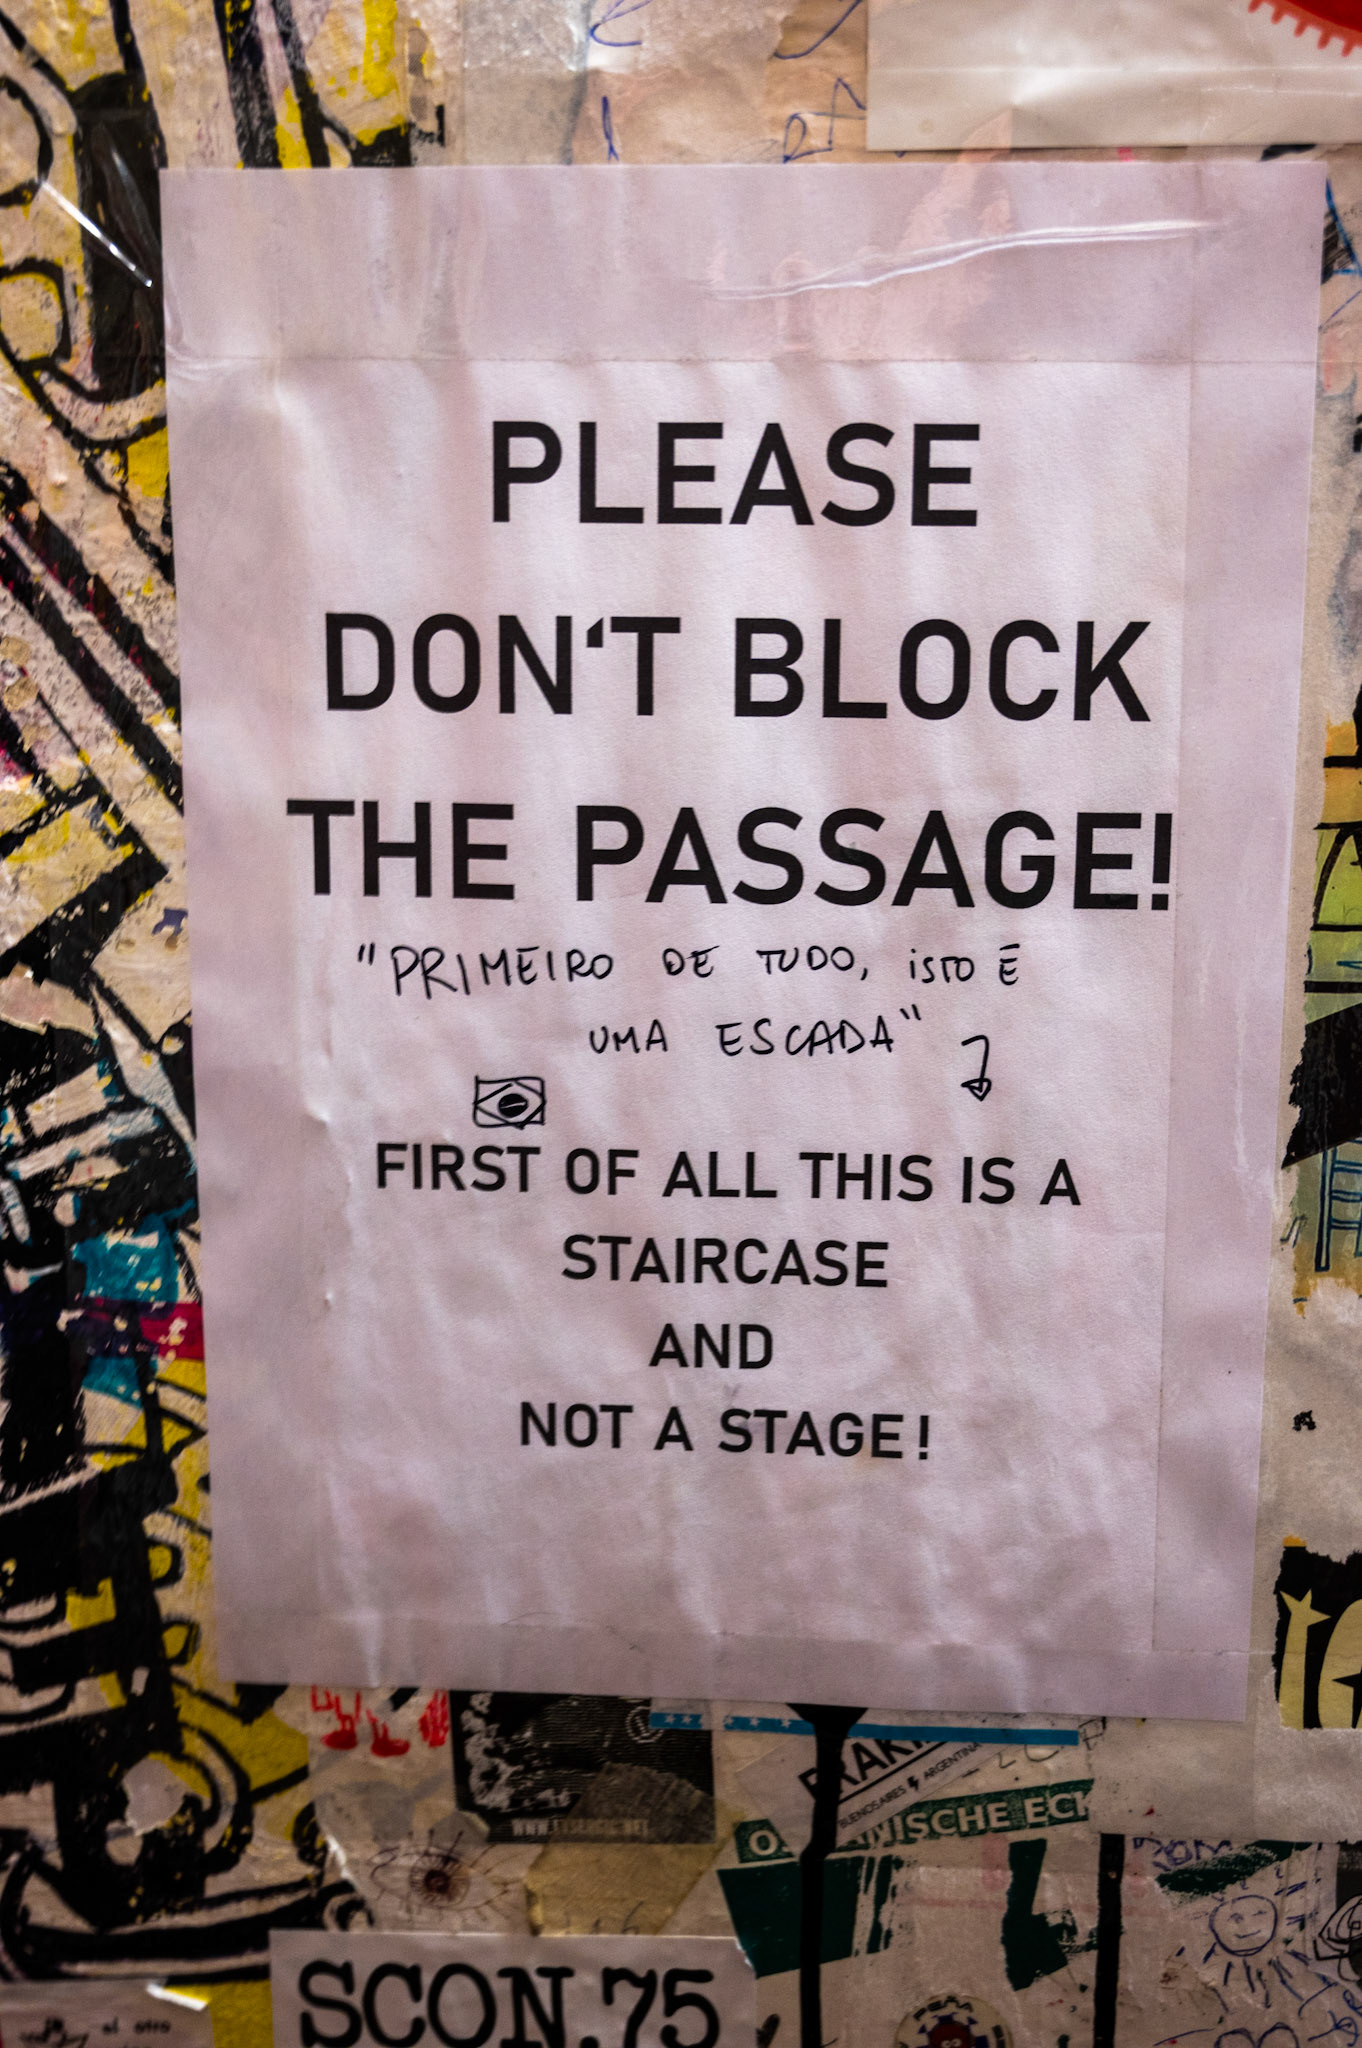 PLEASE
DON'T BLOCK
THE PASSAGE!
"PRIMEIRO DE TUDO, isTO É
UMA ESCADA"
FIRST OF ALL THIS IS A
STAIRCASE
AND
NOT A STAGE!
BUENOS AIRES ARGENTINA
ISCHE ECK
SCON.75
el otro